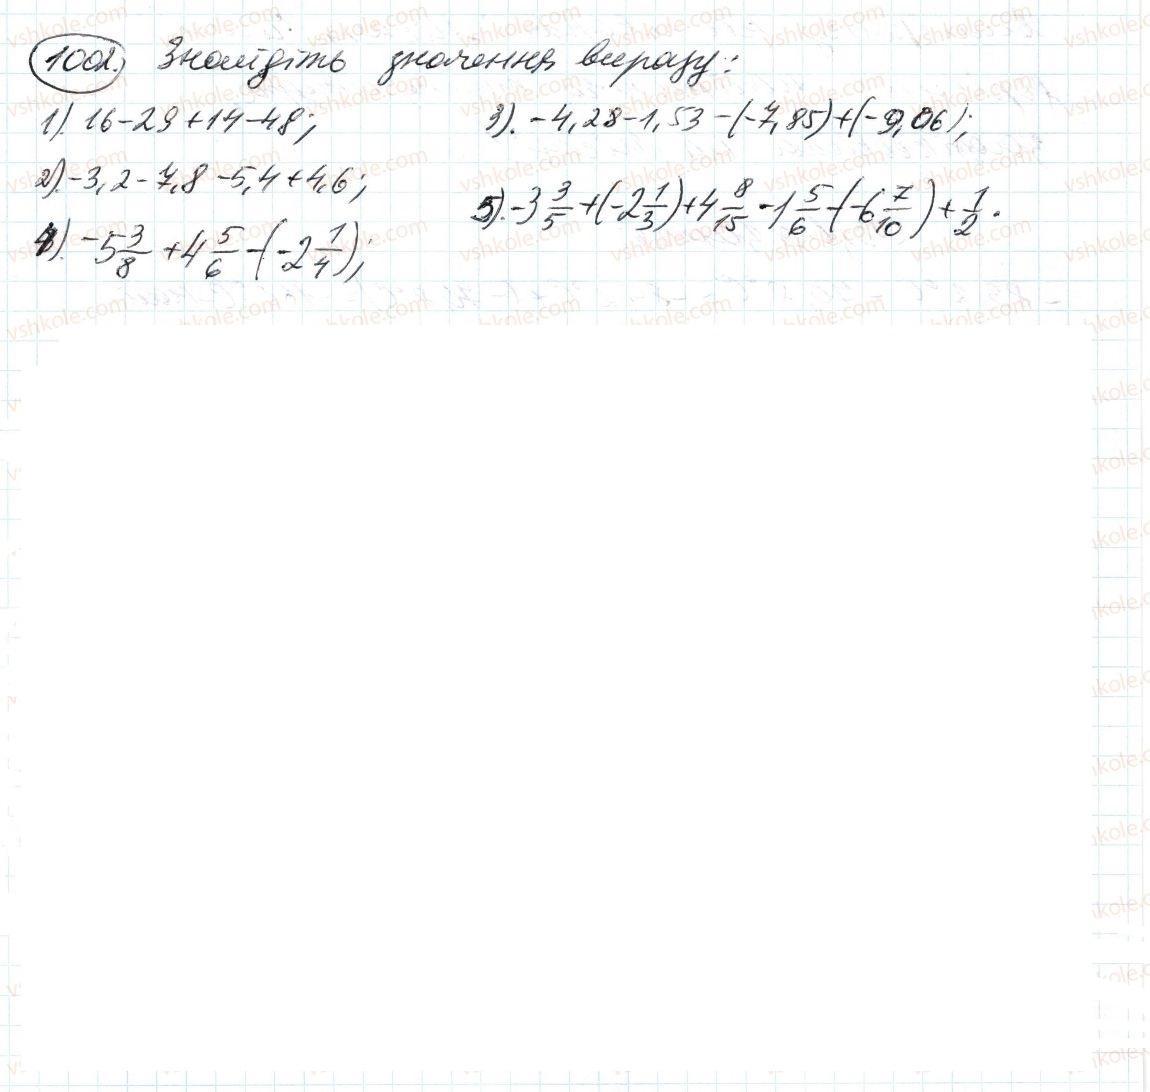 1002. Знайдіть значення виразу:
1). 16-29+14-48;
3). -4,28-1,53-(-7,85)+(-9,06);
2). -3,2-7,8-5,4+4,6;
5). -3 3/5+(-2 1/3)+4 8/15-1 5/6-(-6 7/10)+1/2.
4). -5 3/8+4 5/6-(-2 1/4);
vshkole.com